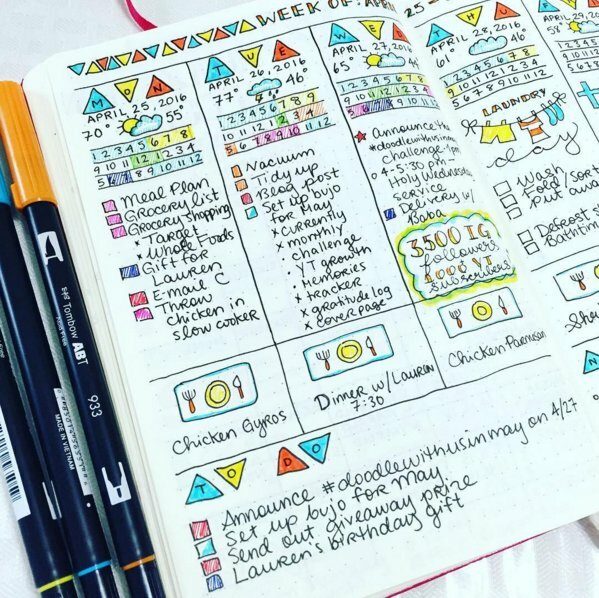 WEEK OF: APRI
MON
APRIL 25, 2016
70° 55°
1 2 3 4 5 6 7 8
9 10 11 12 1 2 3 4
5 6 7 8 9 10 11 12
Meal Plan
Grocery list
Grocery shopping
x Target
x Whole Foods
Gift for
Lauren
E-mail C
Throw
chicken in
slow cooker
Chicken Gyros
TUE
APRIL 26, 2016
77° 46°
1 2 3 4 5 6 7 8 9
10 11 12 1 2 3 4
5 6 7 8 9 10 11 12
Vacuum
Tidy up
Blog post
Set up bujo
for May
x currently
x monthly
challenge
· YT growth
· Memories
x tracker
x gratitude log
x cover page
Dinner w/Lauren
7:30
WE
APRIL 27, 2016
65° 44°
Announce the
#doodlewithusinmay
challenge
4-5:30 pm-
Holy Wednesday
service
Delivery w/
Baba
3500 IG
followers
YT
subscribers
Chicken Parmesan
THU
APRIL 28, 2016
61° 46°
LAUNDRY
day
Wash
Fold, sort
put away
APRIL 29, 2016
58°
Deposit
Bathtim
TO DO
Announce #doodlewithusinmay on 4/27
Set up bujo for May
Send out giveaway prize
Lauren's birthday gift
Tombow ABT
933
MADE IN VIETNAM